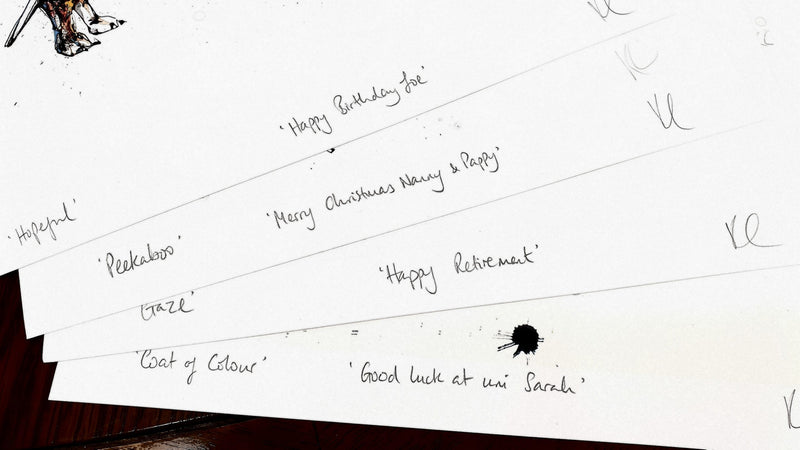 'Hopeful' 'Happy Birthday Joe'
'Peekaboo' 'Merry Christmas Nanny & Pappy'
Gaze' 'Happy Retirement'
'Coat of Colour' 'Good luck at uni Sarah'